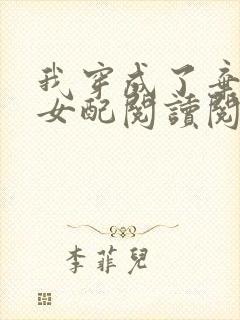 我穿成了
女配閱讀閱
李菲兒